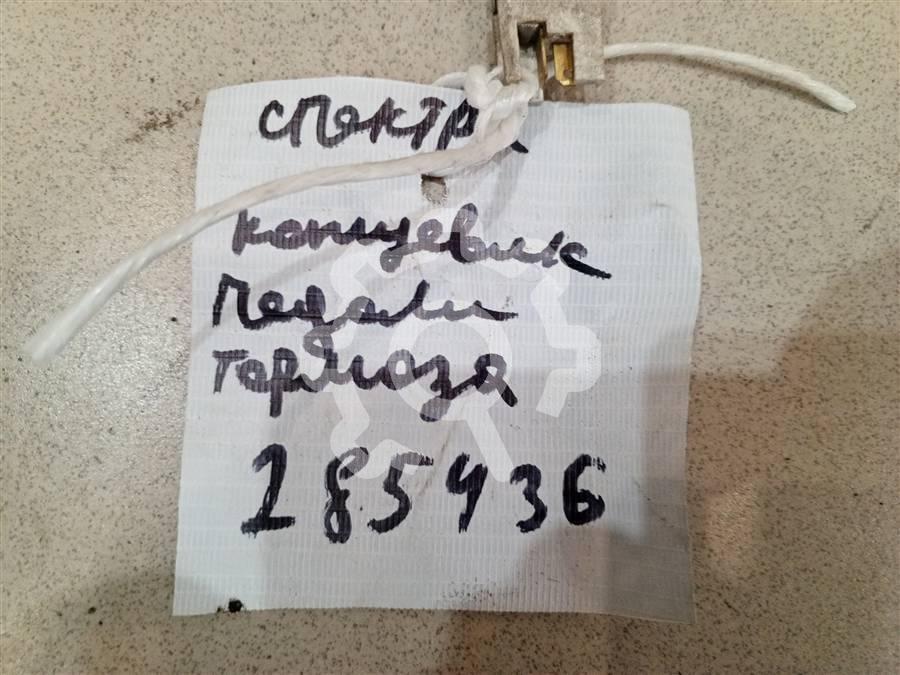 спектра
концевик
педали
тормоза
285436